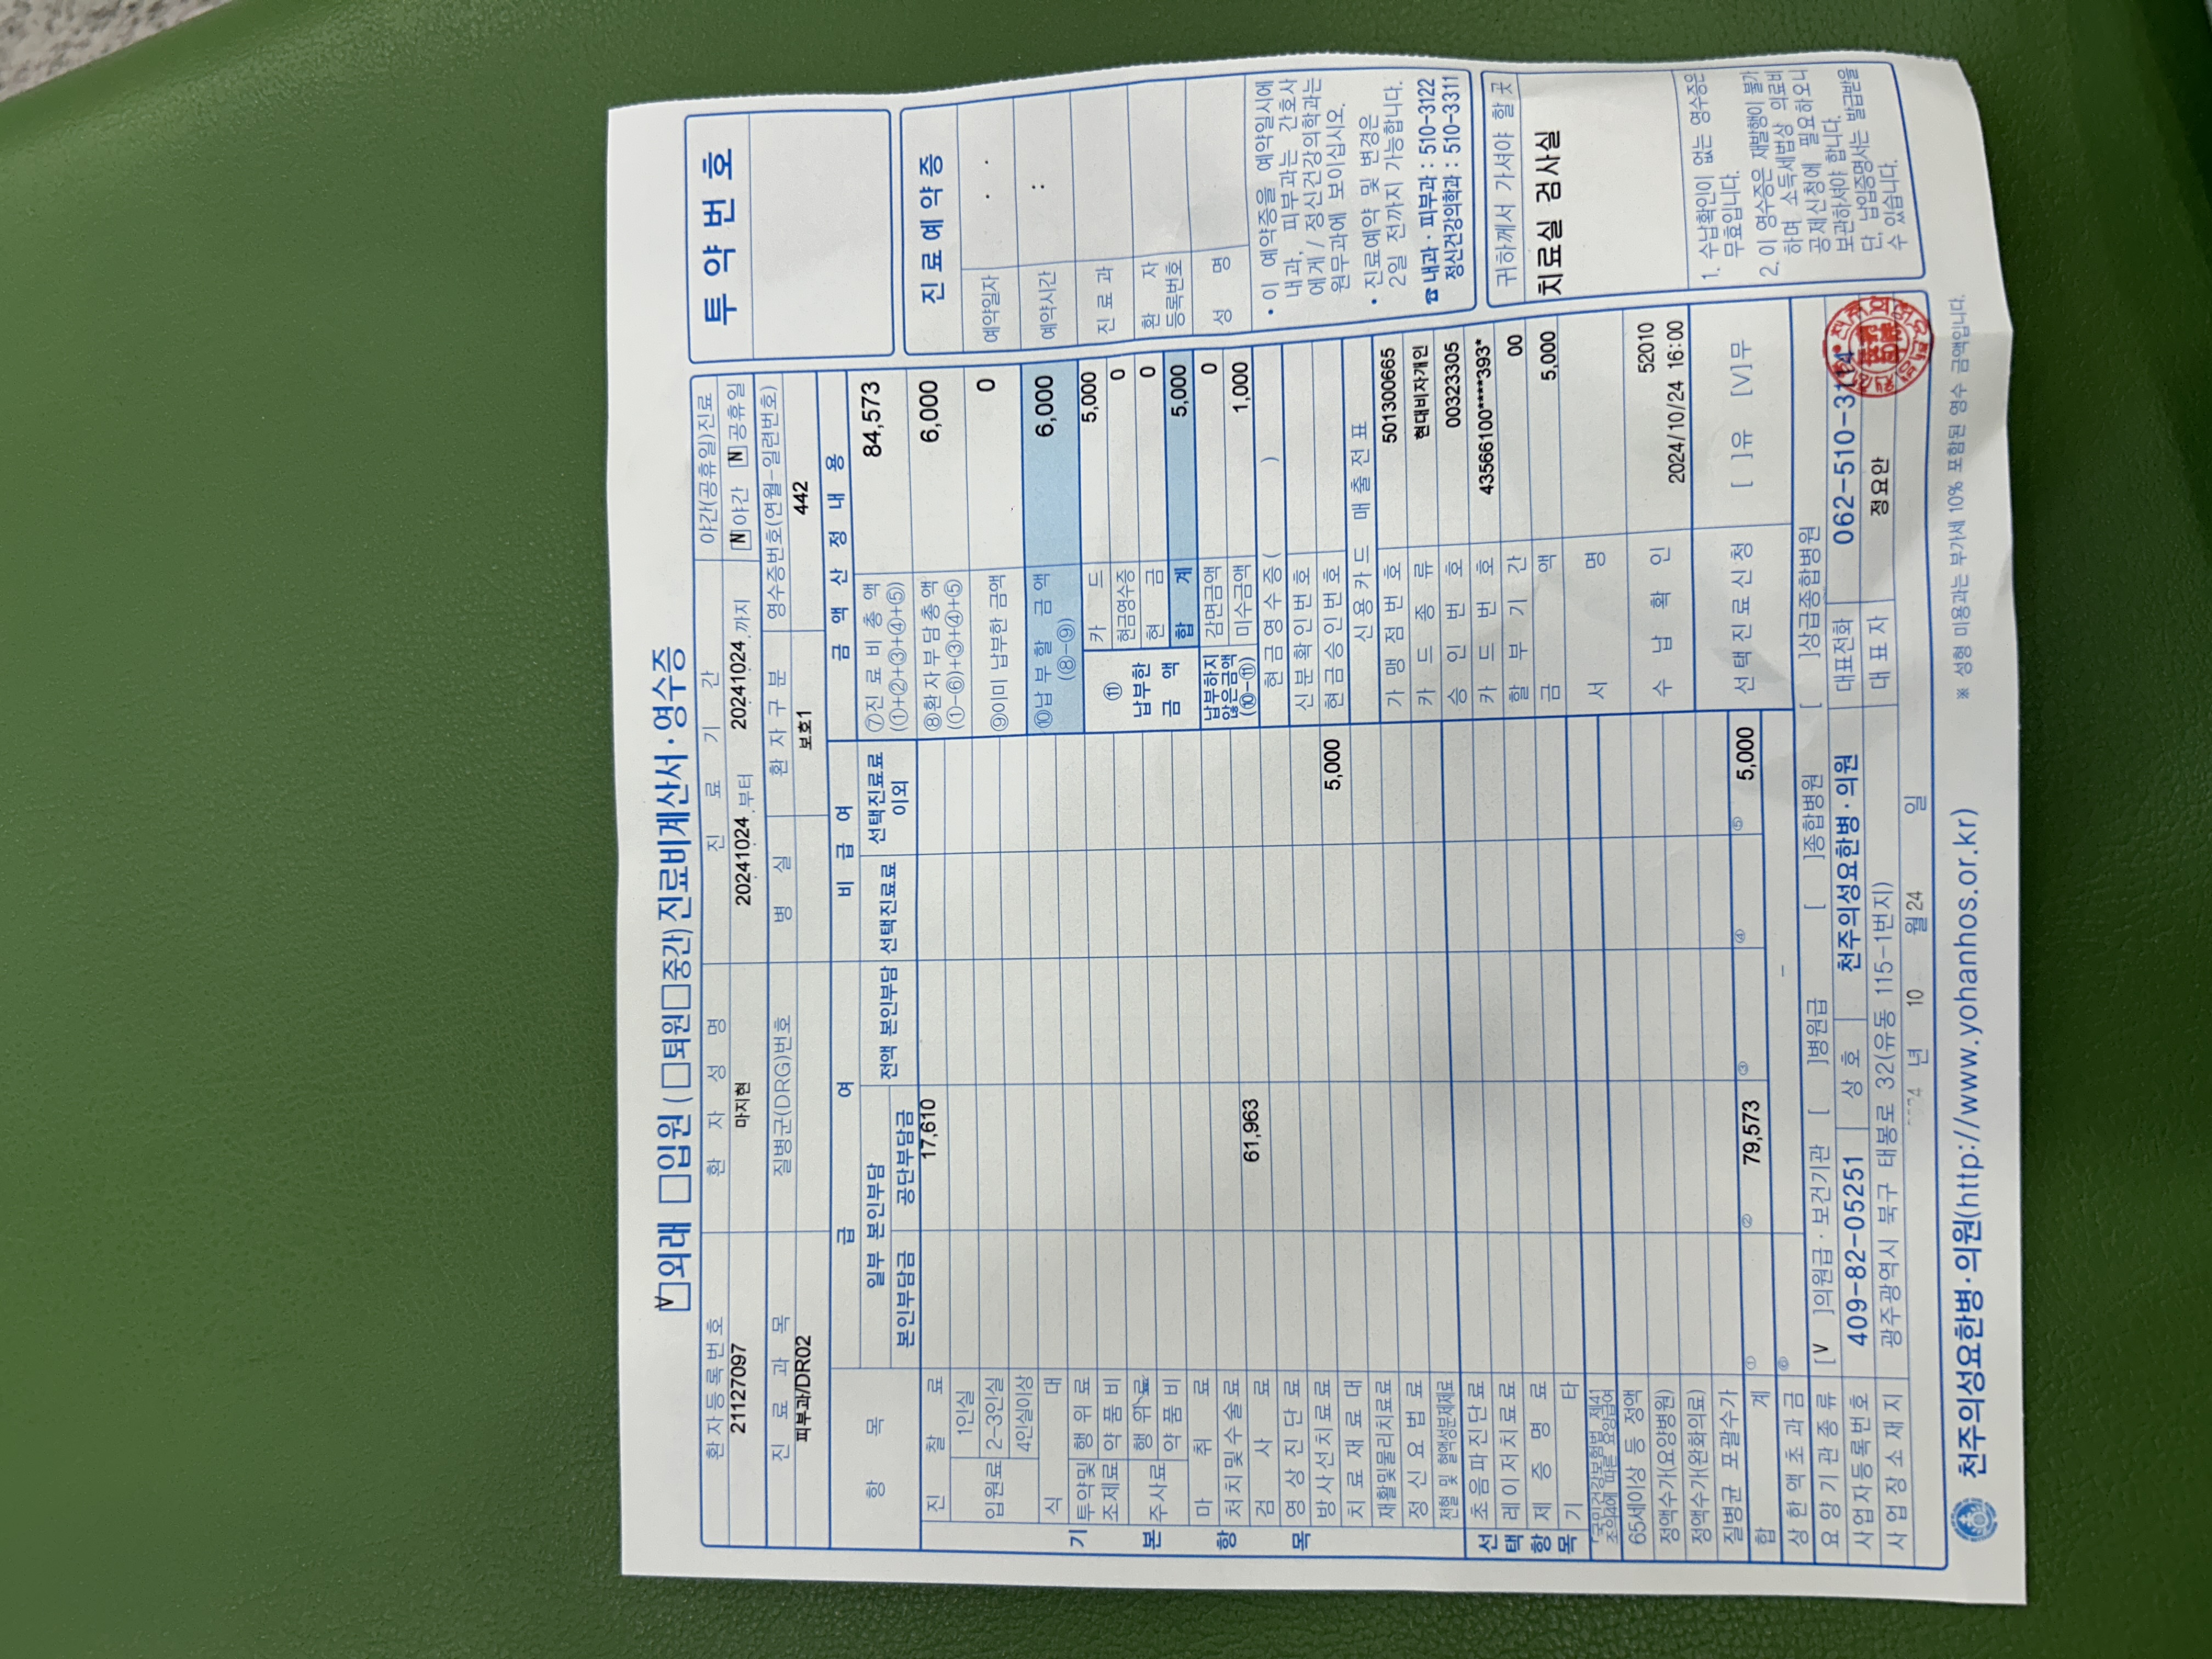 [V]외래 □입원 (□퇴원□중간) 진료비계산서·영수증
환자등록번호 환자성명 진료기간 야간(공휴일)진료
211127097 마지현 20241024 .부터 20241024 .까지 [N]야간 [N]공휴일
진료과목 질병군(DRG)번호 병실 환자구분 영수증번호(연월-일련번호)
피부과/DR02 보호1 442
항목 급여 비급여 금액산정내용
일부 본인부담 전액 본인부담 선택진료료 선택진료료 이외
본인부담금 공단부담금
기본항목
진찰료 17,610
입원료 1인실
2-3인실
4인실이상
식대
투약및조제료 행위료
약품비
주사료 행위료
약품비
마취료
처치및수술료
검사료 61,963
영상진단료
방사선치료료 5,000
치료재료대
재활및물리치료료
정신요법료
전혈 및 혈액성분제제료
선택항목
초음파진단료
레이저치료료
제증명료
기타
「국민건강보험법」제41조의4에 따른 요양급여
65세이상 등 정액
정액수가(요양병원)
정액수가(완화의료)
질병군 포괄수가
합계 ① ② 79,573 ③ ④ ⑤ 5,000
상한액초과금 ⑥ -
⑦진료비총액 (①+②+③+④+⑤) 84,573
⑧환자부담총액 (①-⑥)+③+④+⑤ 6,000
⑨이미 납부한 금액 0
⑩납부할 금액 (⑧-⑨) 6,000
⑪납부한 금액 카드 5,000
현금영수증 0
현금 0
합계 5,000
납부하지 않은금액 (⑩-⑪) 감면금액 0
미수금액 1,000
현금영수증( )
신분확인번호
현금승인번호
신용카드 매출전표
가맹점번호 501300665
카드종류 현대비자개인
승인번호 00323305
카드번호 43566100****393*
할부기간 00
금액 5,000
서명
수납확인 52010
2024/10/24 16:00
선택진료신청 [ ]유 [V]무
요양기관종류 [V ]의원급·보건기관 [ ]병원급 [ ]종합병원 [ ]상급종합병원
사업자등록번호 409-82-05251 상호 천주의성요한병·의원 대표전화 062-510-31
사업장소재지 광주광역시 북구 태봉로 32(유동 115-1번지) 대표자 정요안
년 10 월 24 일
천주의성요한병·의원(http://www.yohanhos.or.kr)
※ 성형 미용과는 부가세 10% 포함된 영수 금액입니다.
투약번호
진료예약증
예약일자 . .
예약시간 :
진료과
환자등록번호
성명
• 이 예약증을 예약일시에
내과, 피부과는 간호사
에게 / 정신건강의학과는
원무과에 보이십시오.
• 진료예약 및 변경은
2일 전까지 가능합니다.
☎ 내과·피부과 : 510-3122
정신건강의학과 : 510-3311
귀하께서 가셔야 할 곳
치료실 검사실
1. 수납확인이 없는 영수증은
무효입니다.
2. 이 영수증은 재발행이 불가
하며, 소득세법상 의료비
공제신청에 필요하오니
보관하셔야 합니다.
단, 납입증명서는 발급받을
수 있습니다.